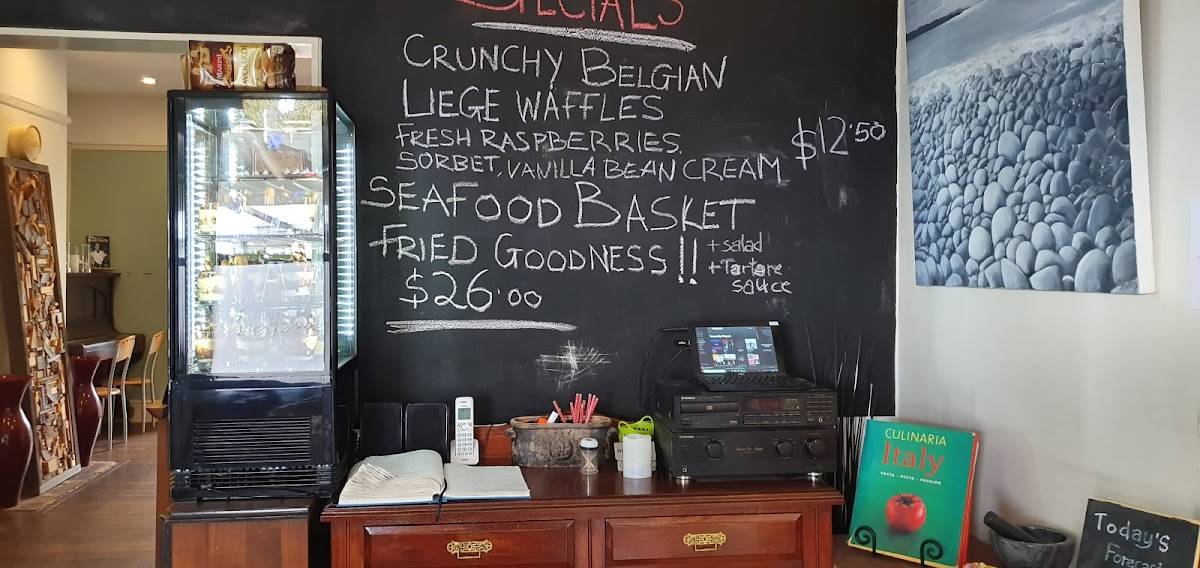 SPECIALS
CRUNCHY BELGIAN
LIEGE WAFFLES
FRESH RASPBERRIES.
SORBET, VANILLA BEAN CREAM
$12.50
SEAFOOD BASKET
FRIED GOODNESS!!
+ salad
+ Tartare
sauce
$26.00
CULINARIA
Italy
PASTA · PESTO · PASSION
Today's
Forecast